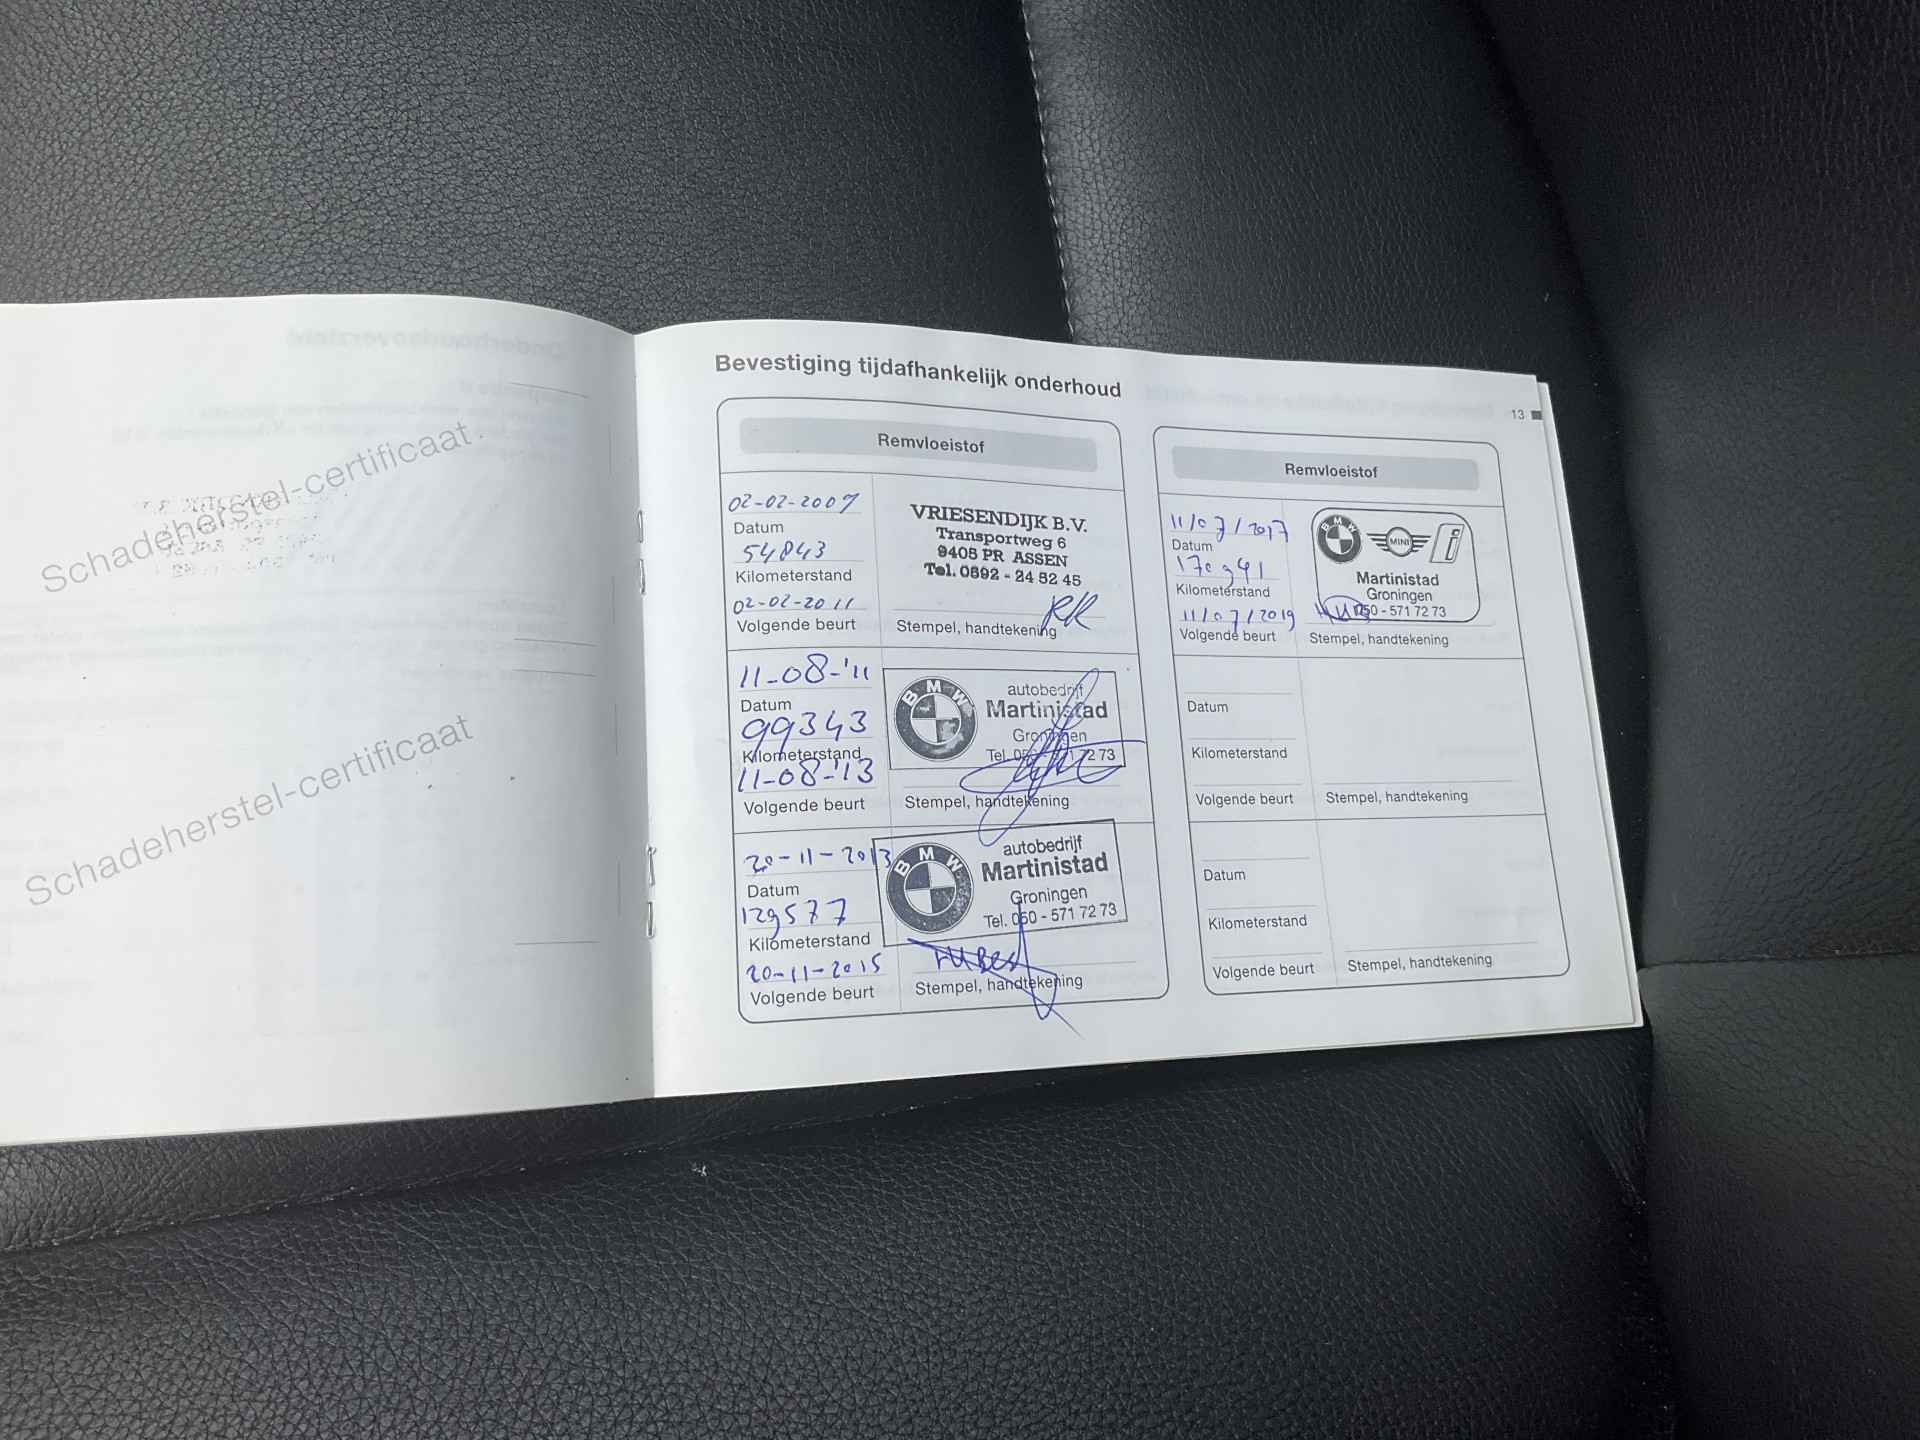 Schadeherstel-certificaat
Schadeherstel-certificaat
Bevestiging tijdafhankelijk onderhoud
13
Remvloeistof
02-02-2009
Datum
54843
Kilometerstand
02-02-2011
Volgende beurt
VRIESENDIJK B.V.
Transportweg 6
9405 PR ASSEN
Tel. 0592 - 24 52 45
RR
Stempel, handtekening
11-08-'11
Datum
99343
Kilometerstand
11-08-'13
Volgende beurt
BMW
autobedrijf
Martinistad
Groningen
Tel. 050 - 571 72 73
Stempel, handtekening
20-11-2013
Datum
129577
Kilometerstand
20-11-2015
Volgende beurt
BMW
autobedrijf
Martinistad
Groningen
Tel. 050 - 571 72 73
Stempel, handtekening
Remvloeistof
11/07/2017
Datum
170941
Kilometerstand
11/07/2019
Volgende beurt
BMW
MINI
i
Martinistad
Groningen
050 - 571 72 73
Stempel, handtekening
Datum
Kilometerstand
Volgende beurt
Stempel, handtekening
Datum
Kilometerstand
Volgende beurt
Stempel, handtekening